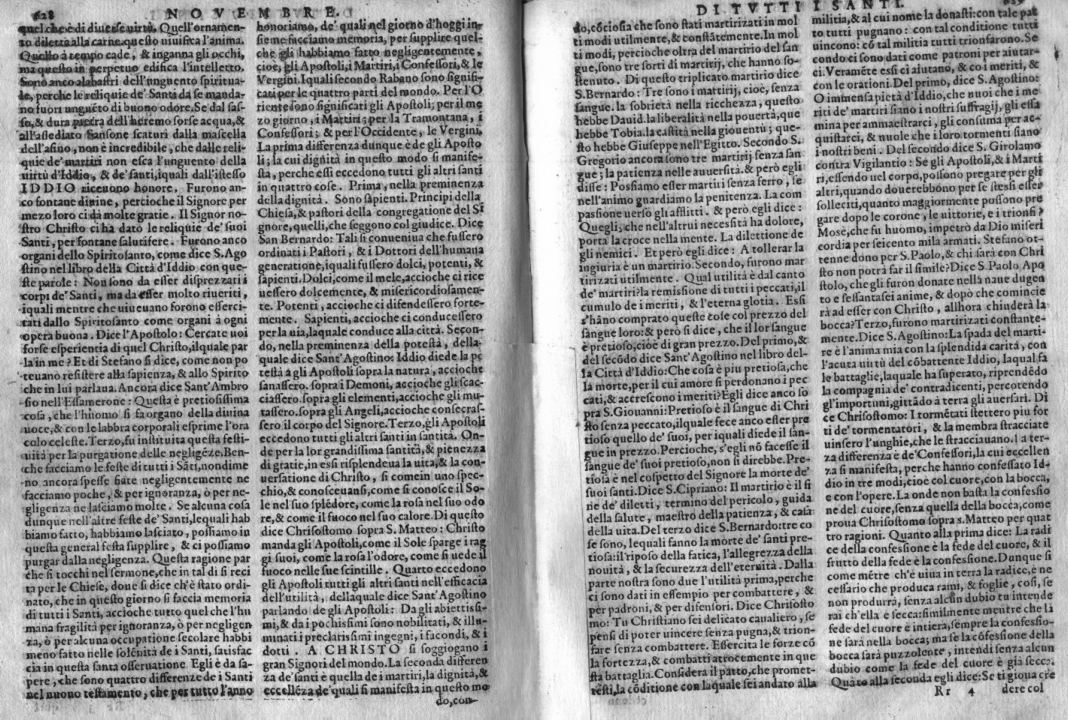 628 NOVEMBRE.
quel che è di diuerse virtù. Quell'ornamen-
to diletta alla carne, questo viuifica l'anima.
Quello à tempo cade, & inganna gli occhi,
ma questo in perpetuo edifica l'intelletto.
Sono anco alabastri dell'inguento spiritua-
le, perche le reliquie de' Santi da se manda-
no fuori ungueto di buono odore. Se dal sas-
so, & dura pietra dell'heremo sorse acqua, &
all'assediato Sansone scaturì dalla mascella
dell'asino, non è incredibile, che dalle reli-
quie de' martiri non esca l'unguento della
uirtù d'Iddio, & de' santi, iquali dall'istesso
IDDIO riceuono honore. Furono an-
co fontane diuine, percioche il Signore per
mezo loro ci dà molte gratie. Il Signor no-
stro Christo ci ha dato le reliquie de' suoi
Santi, per fontane salutifere. Furono anco
organi dello Spiritosanto, come dice S. Ago
stino nel libro della Città d'Iddio con que-
ste parole: Non sono da esser disprezzati i
corpi de' Santi, ma da esser molto riueriti,
iquali mentre che uiueuano furono esserci-
tati dallo Spiritosanto come organi à ogni
opera buona. Dice l'Apostolo: Cercate uoi
forse esperienza di quel Christo, ilquale par
la in me? Et di Stefano si dice, come non po
teuano resistere alla sapienza, & allo Spirito
che in lui parlaua. Ancora dice Sant'Ambro
sio nell'Essamerone: Questa è pretiosissima
cosa, che l'huomo si fa organo della diuina
uoce, & con labbra corporali esprime l'ora
colo celeste. Terzo, fu instituita questa festi-
uità per la purgatione delle negligéze. Ben-
che facciamo le feste di tutti i Sāti, nondime
no ancora spesse siate negligentemente ne
facciamo poche, & per ignoranza, ò per ne-
gligenza ne lasciamo molte. Se alcuna cosa
dunque nell'altre feste de' Santi, lequali hab
biamo fatto, habbiamo lasciato, possiamo in
questa general festa supplire, & ci possiamo
purgar dalla negligenza. Questa ragione par
che si tocchi nel sermone, che in tal dì si reci
ta per le Chiese, doue si dice ch'è stato ordi-
nato, che in questo giorno si faccia memoria
di tutti i Santi, accioche tutto quel che l'hu
mana fragilità per ignoranza, ò per negligen
za, ò per alcuna occupatione secolare habbi
meno fatto nelle solénità de i Santi, satisfac
cia in questa santa osseruatione. Egli è da sa-
pere, che sono quattro differenze de i Santi
nel nuouo testamento, che per tutto l'anno
honoriamo, de' quali nel giorno d'hoggi in-
sieme facciamo memoria, per supplire quel-
che gli habbiamo fatto negligentemente,
cioè, gli Apostoli, i Martiri, i Confessori, & le
Vergini. I quali secondo Rabano sono signifi-
cati per le quattro parti del mondo. Per l'O
riente sono significati gli Apostoli, per il me
zo giorno, i Martiri; per la Tramontana, i
Confessori; & per l'Occidente, le Vergini.
La prima differenza dunque è de gli Aposto
li; la cui dignità in questo modo si manife-
sta, perche essi eccedono tutti gli altri santi
in quattro cose. Prima, nella preminenza
della dignità. Sono sapienti. Principi della
Chiesa, & pastori della congregatione del Si
gnore, quelli, che seggono col giudice. Dice
San Bernardo: Tali si conueniua che fussero
ordinati i Pastori, & i Dottori dell'humana
generatione, iquali fussero dolci, potenti, &
sapienti. Dolci, come il mele, accioche ci rice
uessero dolcemente, & misericordiosamen-
te. Potenti, accioche ci difendessero forte-
mente. Sapienti, accioche ci conducessero
per la uia, laquale conduce alla città. Secon-
do, nella preminenza della potestà, della-
quale dice Sant'Agostino: Iddio diede la po
testà à gli Apostoli sopra la natura, accioche
sanassero. sopra i Demoni, accioche gli scac-
ciassero. sopra gli elementi, accioche gli mu-
tassero. sopra gli Angeli, accioche consecras-
sero il corpo del Signore. Terzo, gli Apostoli
eccedono tutti gli altri santi in santità. On-
de per la lor grandissima santità, & pienezza
di gratie, in essi risplendeua la uita, & la con-
uersatione di Christo, si come in uno spec-
chio, & conosceuansi, come si conosce il So-
le nel suo splédore, come la rosa nel suo odo
re, & come il fuoco nel suo calore. Di questo
dice Chrisostomo sopra S. Matteo: Christo
manda gli Apostoli, come il Sole sparge i rag
gi suoi, come la rosa l'odore, come si uede il
fuoco nelle sue scintille. Quarto eccedono
gli Apostoli tutti gli altri santi nell'efficacia
dell'utilità, dellaquale dice Sant'Agostino
parlando de gli Apostoli: Da gli abiettissi-
mi, & da i pochissimi sono nobilitati, & illu-
minati i preclarissimi ingegni, i facondi, & i
dotti. A CHRISTO si soggiogano i
gran Signori del mondo. La seconda differen
za de' santi è quella de i martiri, la dignità, &
eccellēza de' quali si manifesta in questo mo
do, con-
DI TVTTI I SANTI. 629
do, cóciosia che sono stati martirizati in mol
ti modi utilmente, & constātemente. In mol
ti modi, percioche oltra del martirio del san
gue, sono tre sorti di martirij, che hanno so-
stenuto. Di questo triplicato martirio dice
S. Bernardo: Tre sono i martirij, cioè, senza
sangue. la sobrietà nella ricchezza, questo
hebbe Dauid. la liberalità nella pouertà, que
hebbe Tobia. la castità nella giouentù; que-
sto hebbe Giuseppe nell'Egitto. Secondo S.
Gregorio ancora sono tre martirij senza san
gue; la patienza nelle auuersità. & però egli
disse: Possiamo esser martiri senza ferro, se
nell'animo guardiamo la penitenza. La com
passione uerso gli afflitti. & però egli dice:
Quegli, che nell'altrui necessità ha dolore,
porta la croce nella mente. La dilettione de
gli nemici. Et però egli dice: A tollerar la
ingiuria è un martirio. Secondo, furono mar
tirizati utilmente. Qual utilità è dal canto
de' martiri? la remissione di tutti i peccati, il
cumulo de i meriti, & l'eterna glotia. Essi
s'hāno comprato queste cose col prezzo del
sangue loro: & però si dice, che il lor sangue
è pretioso, cioè di gran prezzo. Del primo, &
del secōdo dice Sant'Agostino nel libro del-
la Città d'Iddio: Che cosa è piu pretiosa, che
la morte, per il cui amore si perdonano i pec
cati, & accrescono i meriti? Egli dice anco so
pra S. Giouanni: Pretioso è il sangue di Chri
sto senza peccato, ilquale fece anco esser pre
tioso quello de' suoi, per iquali diede il san-
gue in prezzo. Percioche, s'egli nō facesse il
sangue de' suoi pretioso, non si direbbe. Pre-
tiosa è nel cospetto del Signore la morte de'
suoi santi. Dice S. Cipriano: Il martirio è il fi
ne de' diletti, termine del pericolo, guida
della salute, maestro della patienza, & casa
della uita. Del terzo dice S. Bernardo: tre co
se sono, lequali fanno la morte de' santi pre-
tiosa: il riposo della fatica, l'allegrezza della
nouità, & la securezza dell'eternità. Dalla
parte nostra sono due l'utilità prima, perche
ci sono dati in essempio per combattere, &
per padroni, & per difensori. Dice Chrisosto
mo: Tu Christiano sei delicato caualiero, se
pensi di poter uincere senza pugna, & trion-
fare senza combattere. Essercita le forze có
la fortezza, & combatti atrocemente in que
sta battaglia. Considera il patto, che promet-
testi, la cōditione con laquale sei andato alla
militia, & al cui nome la donasti: con tale pat
to tutti pugnano: con tal conditione tutti
uincono: có tal militia tutti trionfano. Se
condo ci sono dati come patroni per aiutar-
ci. Veraméte essi ci aiutano, & co i meriti, &
con le orationi. Del primo, dice S. Agostino:
O immensa pietà d'Iddio, che uuoi che i me
riti de' martiri siano i nostri suffragij, gli essa
mina per ammaestrarci, gli consuma per ac-
quistarci, & uuole che i loro tormenti siano
i nostri beni. Del secondo dice S. Girolamo
contra Vigilantio: Se gli Apostoli, & i Marti
ri, essendo nel corpo, possono pregare per gli
altri, quando douerebbono per se stessi esser
solleciti, quanto maggiormente possono pre
gare dopo le corone, le uittorie, e i trionfi?
Mosè, che fu huomo, impetrò da Dio miseri
cordia per seicento mila armati. Stefano ot-
tenne dono per S. Paolo, & chi sarà con Chri
sto non potrà far il simile? Dice S. Paolo Apo
stolo, che gli furon donate nella naue dugen
to e sessantasei anime, & dopò che comincie
rà ad esser con Christo, allhora chiuderà la
bocca? Terzo, furono martirizati constante-
mente. Dice S. Agostino: La spada del marti-
re è l'anima mia con la splendida carità, con
l'acuta uirtù del cōbattente Iddio, laqual fa
le battaglie, laquale ha superato, riprendēdo
la compagnia de' contradicenti, percotendo
gl'importuni, gittādo à terra gli auersari. Di
ce Chrisostomo: I tormétati stettero piu for
ti de' tormentatori, & la membra stracciate
uinsero l'unghie, che le stracciauano. La ter-
za differenza è de' Confessori, la cui eccellen
za si manifesta, perche hanno confessato Id-
dio in tre modi, cioè col cuore, con la bocca,
e con l'opere. La onde non basta la confessio
ne del cuore, senza quella della bocca, come
proua Chrisostomo sopra s. Matteo per quat
tro ragioni. Quanto alla prima dice: La radi
ce della confessione è la fede del cuore, & il
frutto della fede è la confessione. Dunque si
come métre ch'è uiua in terra la radice, è ne
cessario che produca rami, & foglie, così, se
non produrrà, senza alcun dubio tu intende
rai ch'ella è secca: similmente mentre che la
fede del cuore è intiera, sempre la confessio-
ne sarà nella bocca; ma se la cōfessione della
bocca sarà puzzolente, intendi senza alcun
dubio come la fede del cuore è già secca.
Quāto alla seconda egli dice: Se ti gioua cre
Rr 4 dere col